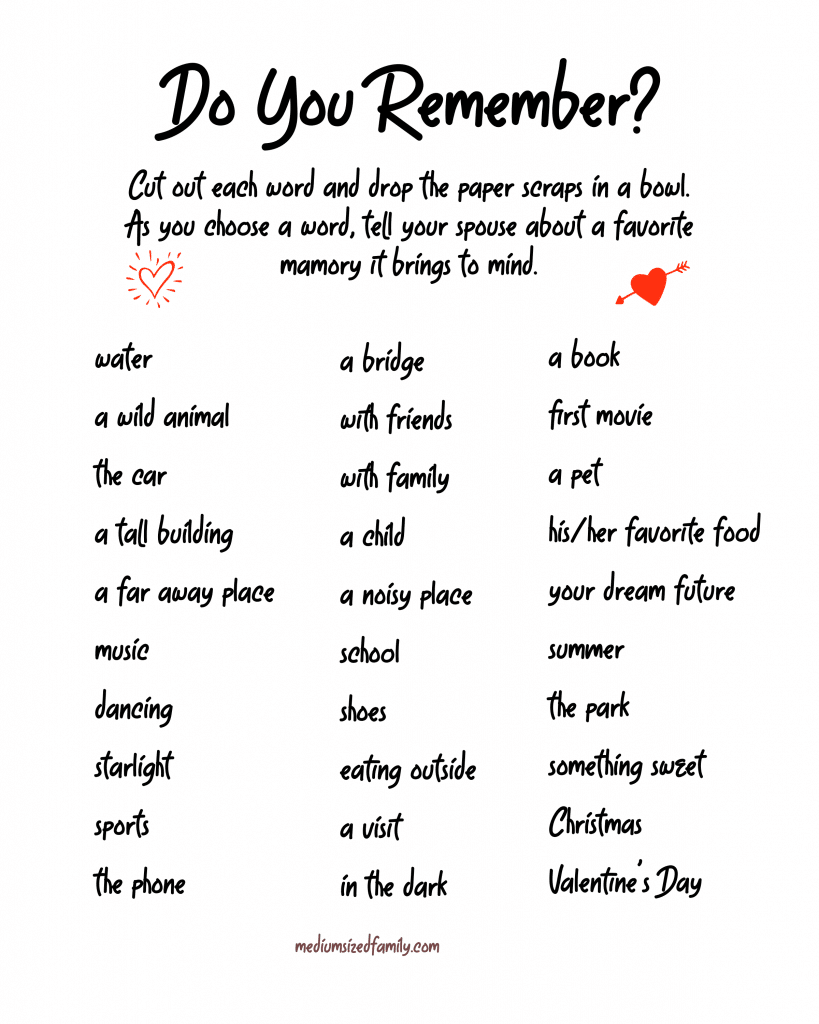 Do You Remember?
Cut out each word and drop the paper scraps in a bowl.
As you choose a word, tell your spouse about a favorite
mamory it brings to mind.
water
a wild animal
the car
a tall building
a far away place
music
dancing
starlight
sports
the phone
a bridge
with friends
with family
a child
a noisy place
school
shoes
eating outside
a visit
in the dark
a book
first movie
a pet
his/her favorite food
your dream future
summer
the park
something sweet
Christmas
Valentine's Day
mediumsizedfamily.com